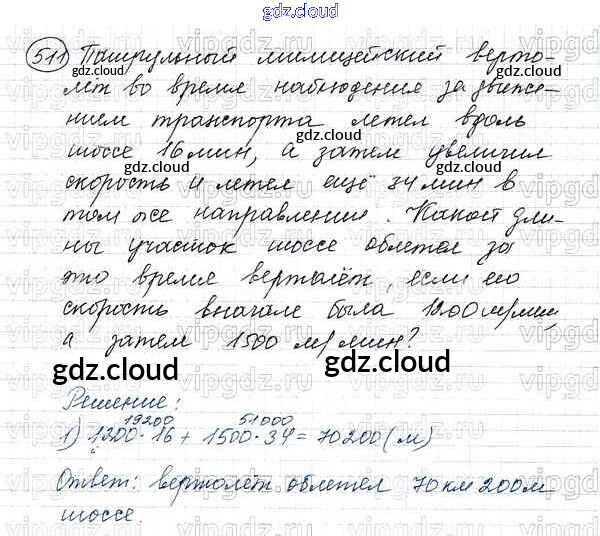 gdz.cloud
511 Патрульный милицейский верто-
лёт во время наблюдения за движе-
нием транспорта летел вдоль
шоссе 16 мин, а затем увеличил
скорость и летел ещё 34 мин в
том же направлении. Какой дли-
ны участок шоссе облетел за
это время вертолёт, если его
скорость вначале была 1200 м/мин,
а затем 1500 м/мин?
gdz.cloud gdz.cloud
Решение:
19200 51000
1) 1200 · 16 + 1500 · 34 = 70200 (м)
Ответ: вертолёт облетел 70 км 200 м
шоссе.